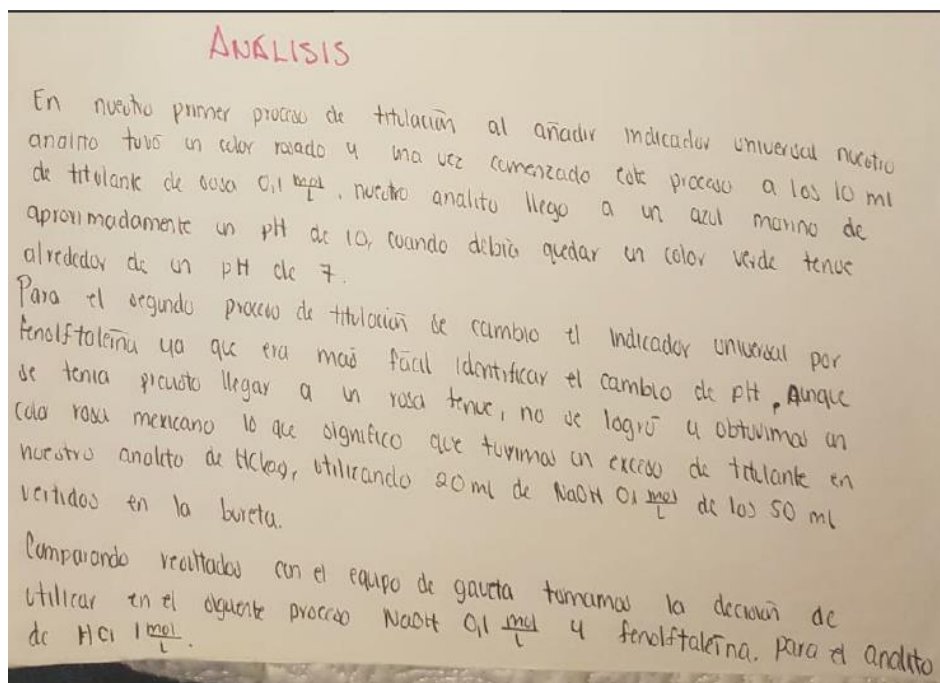 ANÁLISIS
En nuestro primer proceso de titulación al añadir indicador universal nuestro
analito tuvó un color rosado y una vez comenzado este proceso a los 10 ml
de titulante de sosa 0,1 mol/L, nuestro analito llego a un azul marino de
aproximadamente un pH de 10, cuando debía quedar un color verde tenue
alrededor de un pH de 7.
Para el segundo proceso de titulación se cambio el indicador universal por
fenolftaleína ya que era más fácil identificar el cambio de pH, Aunque
se tenia previsto llegar a un rosa tenue, no se logró y obtuvimos un
color rosa mexicano lo que significo que tuvimos un exceso de titulante en
nuestro analito de HCl(aq), utilizando 20 ml de NaOH 0,1 mol/L de los 50 ml
vertidos en la bureta.
Comparando resultados con el equipo de gaveta tomamos la decisión de
utilizar en el siguiente proceso NaOH 0,1 mol/L y fenolftaleína. Para el analito
de HCl 1 mol/L.